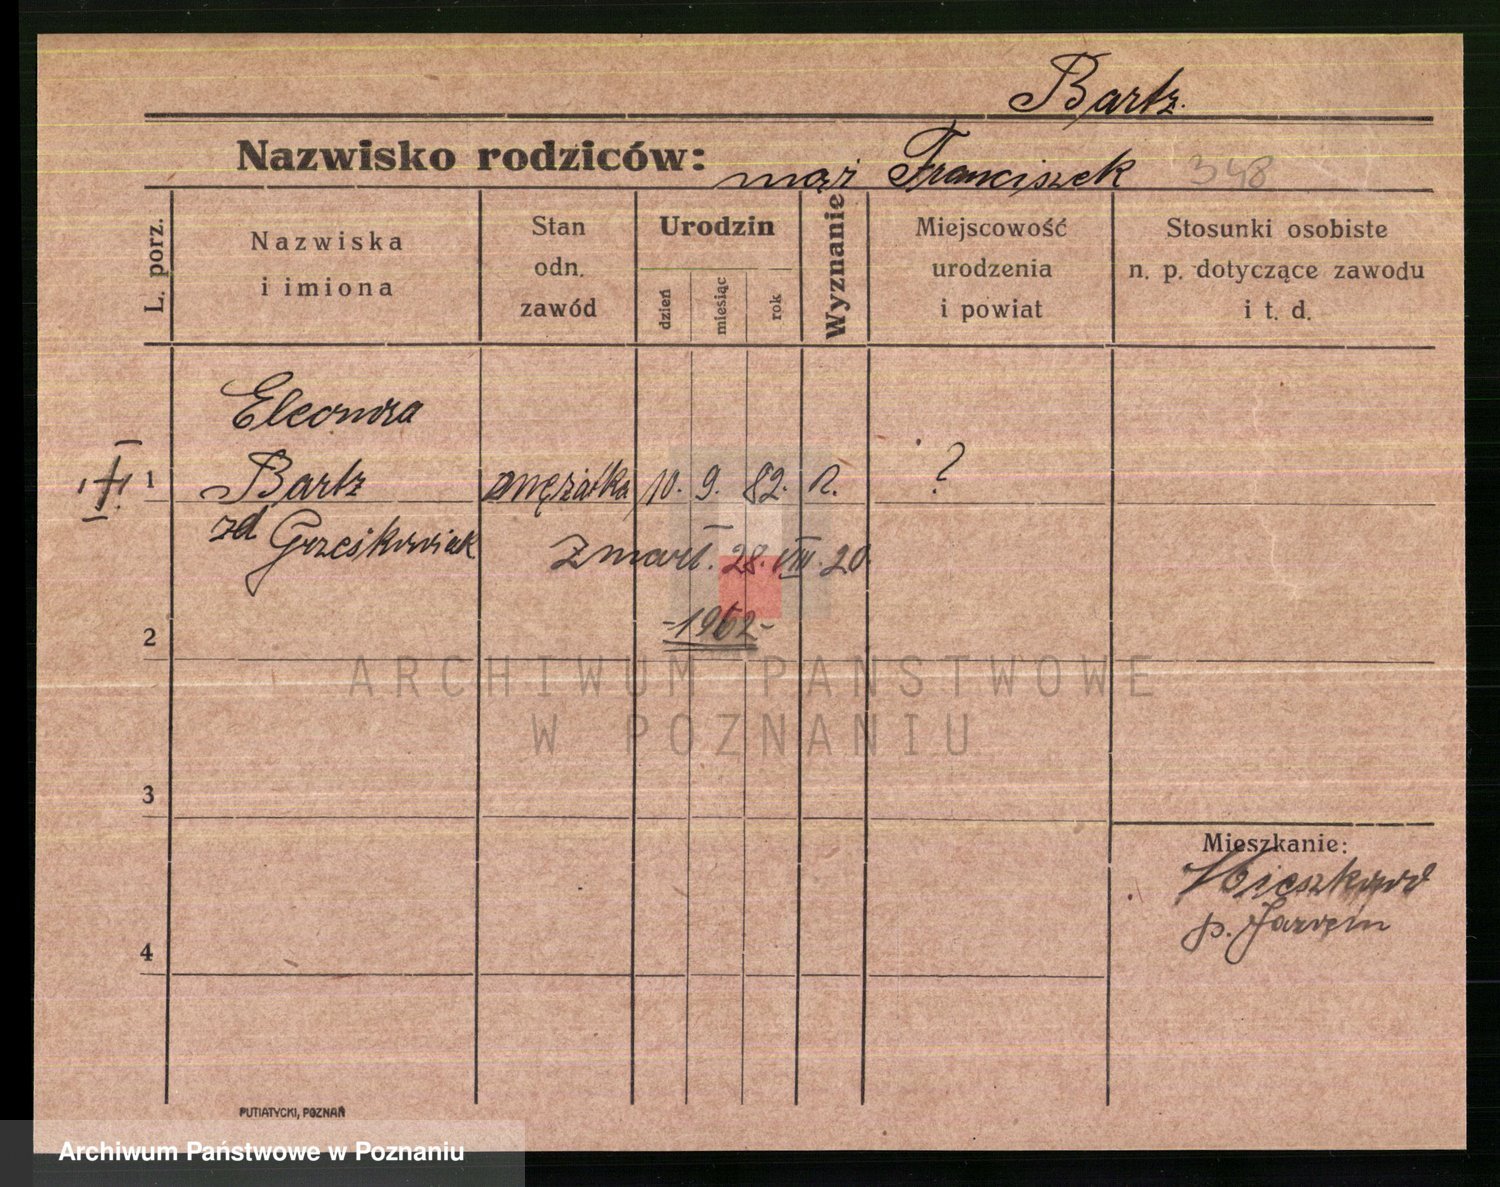 Bartz.
Nazwisko rodziców: mąż Franciszek 348
L. porz.
Nazwiska
i imiona
Stan
odn.
zawód
Urodzin
dzień
miesiąc
rok
Wyznanie
Miejscowość
urodzenia
i powiat
Stosunki osobiste
n. p. dotyczące zawodu
i t. d.
Eleonora
1 Bartz mężatka 10. 9. 82. R. ?
zd Grześkowiak
Zmarł. 28. VIII. 20.
-1962-
2
ARCHIWUM PAŃSTWOWE
W POZNANIU
3
Mieszkanie:
p.
4
PUTIATYCKI, POZNAŃ
Archiwum Państwowe w Poznaniu